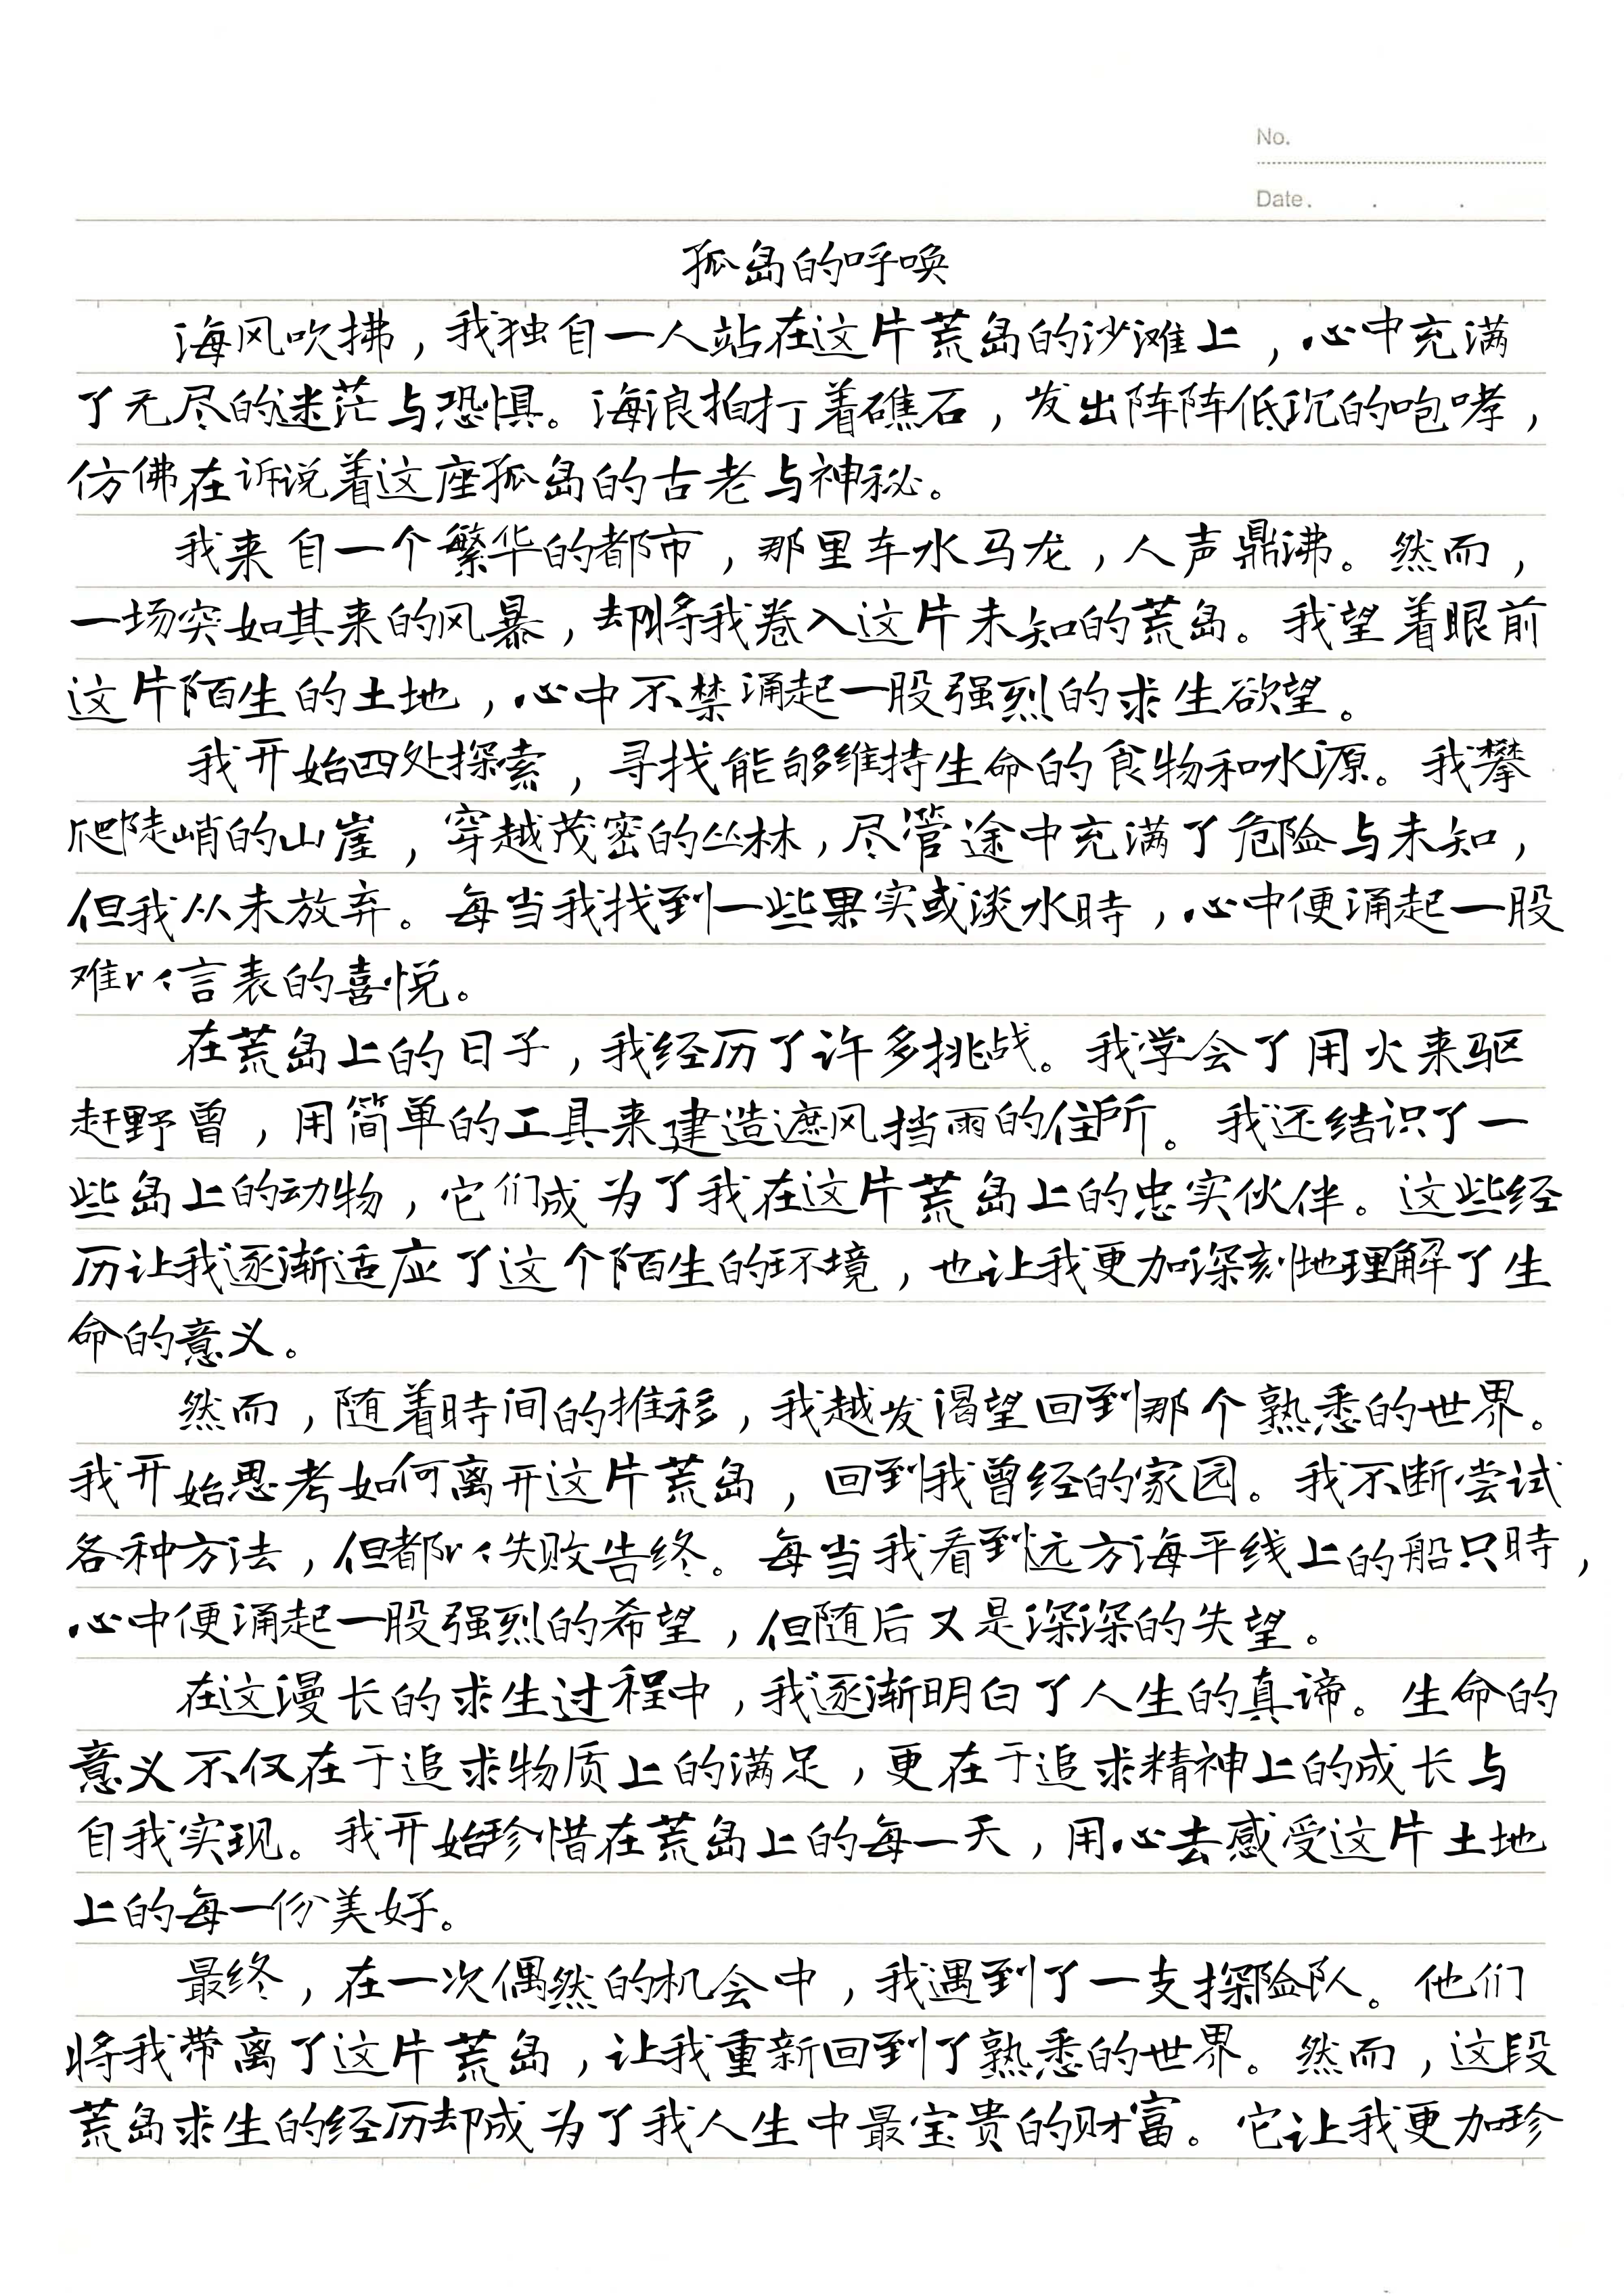 No.
Date.
孤岛的呼唤
海风吹拂，我独自一人站在这片荒岛的沙滩上，心中充满
了无尽的迷茫与恐惧。海浪拍打着礁石，发出阵阵低沉的咆哮，
仿佛在诉说着这座孤岛的古老与神秘。
我来自一个繁华的都市，那里车水马龙，人声鼎沸。然而，
一场突如其来的风暴，却将我卷入这片未知的荒岛。我望着眼前
这片陌生的土地，心中不禁涌起一股强烈的求生欲望。
我开始四处探索，寻找能够维持生命的食物和水源。我攀
爬陡峭的山崖，穿越茂密的丛林，尽管途中充满了危险与未知，
但我从未放弃。每当我找到一些果实或淡水時，心中便涌起一股
难以言表的喜悦。
在荒岛上的日子，我经历了许多挑战。我学会了用火来驱
赶野兽，用简单的工具来建造遮风挡雨的住所。我还结识了一
些岛上的动物，它们成为了我在这片荒岛上的忠实伙伴。这些经
历让我逐渐适应了这个陌生的环境，也让我更加深刻地理解了生
命的意义。
然而，随着時间的推移，我越发渴望回到那个熟悉的世界。
我开始思考如何离开这片荒岛，回到我曾经的家园。我不断尝试
各种方法，但都以失败告终。每当我看到远方海平线上的船只時，
心中便涌起一股强烈的希望，但随后又是深深的失望。
在这漫长的求生过程中，我逐渐明白了人生的真谛。生命的
意义不仅在于追求物质上的满足，更在于追求精神上的成长与
自我实现。我开始珍惜在荒岛上的每一天，用心去感受这片土地
上的每一份美好。
最终，在一次偶然的机会中，我遇到了一支探险队。他们
将我带离了这片荒岛，让我重新回到了熟悉的世界。然而，这段
荒岛求生的经历却成为了我人生中最宝贵的财富。它让我更加珍